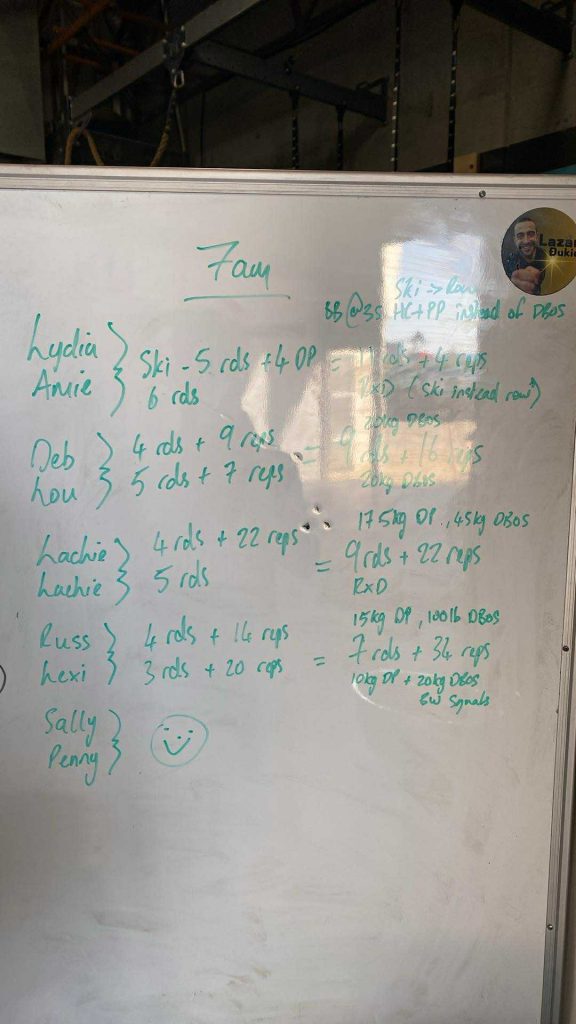 7am
Ski -> Row
BB @35 HC+PP instead of DBOS
Lydia
Amie
Ski - 5 rds + 4 DP
6 rds
= 11 rds + 4 reps
RxD (Ski instead row)
Deb
Lou
4 rds + 9 reps
5 rds + 7 reps
20kg DBOS
= 9 rds + 16 reps
20kg DBOS
Lachie
Lachie
4 rds + 22 reps
5 rds
17.5kg DP, 45kg DBOS
= 9 rds + 22 reps
RxD
Russ
Lexi
4 rds + 14 reps
3 rds + 20 reps
15kg DP, 100lb DBOS
= 7 rds + 34 reps
10kg DP + 20kg DBOS
BW Squats
Sally
Penny
Lazar
Đukić